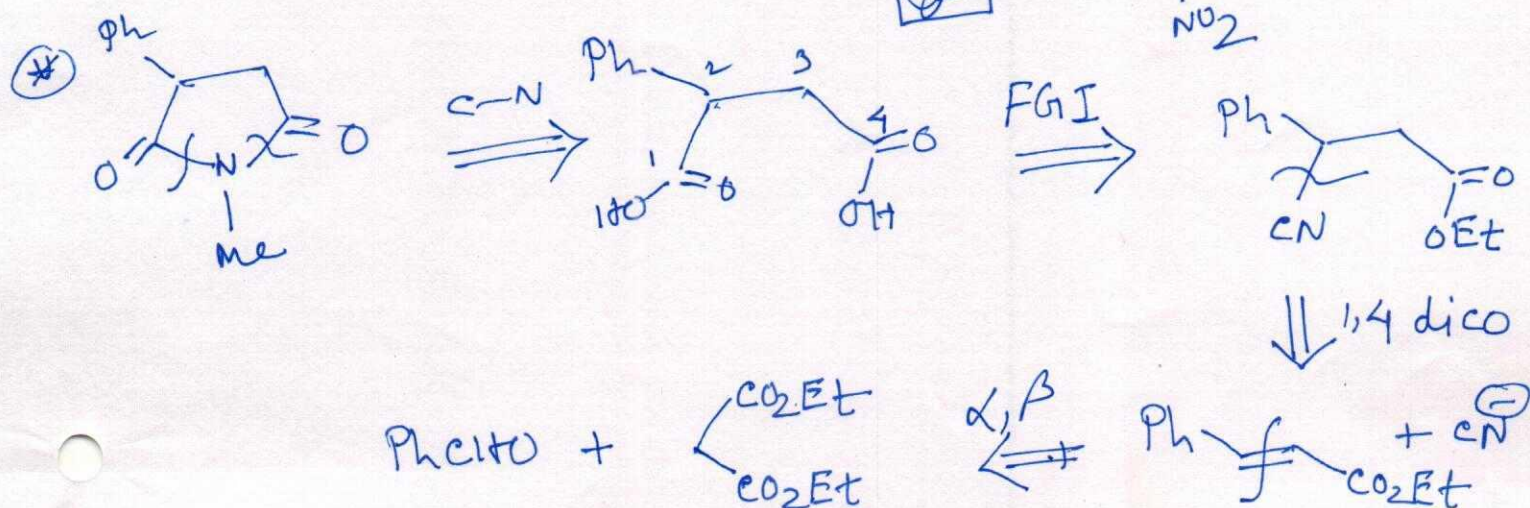 NO2
* Ph O N O Me C-N Ph 2 3 1 HO O 4 O OH FGI Ph CN O OEt
1,4 dico
PhCHO + CO2Et CO2Et α,β Ph CO2Et + CN⊖